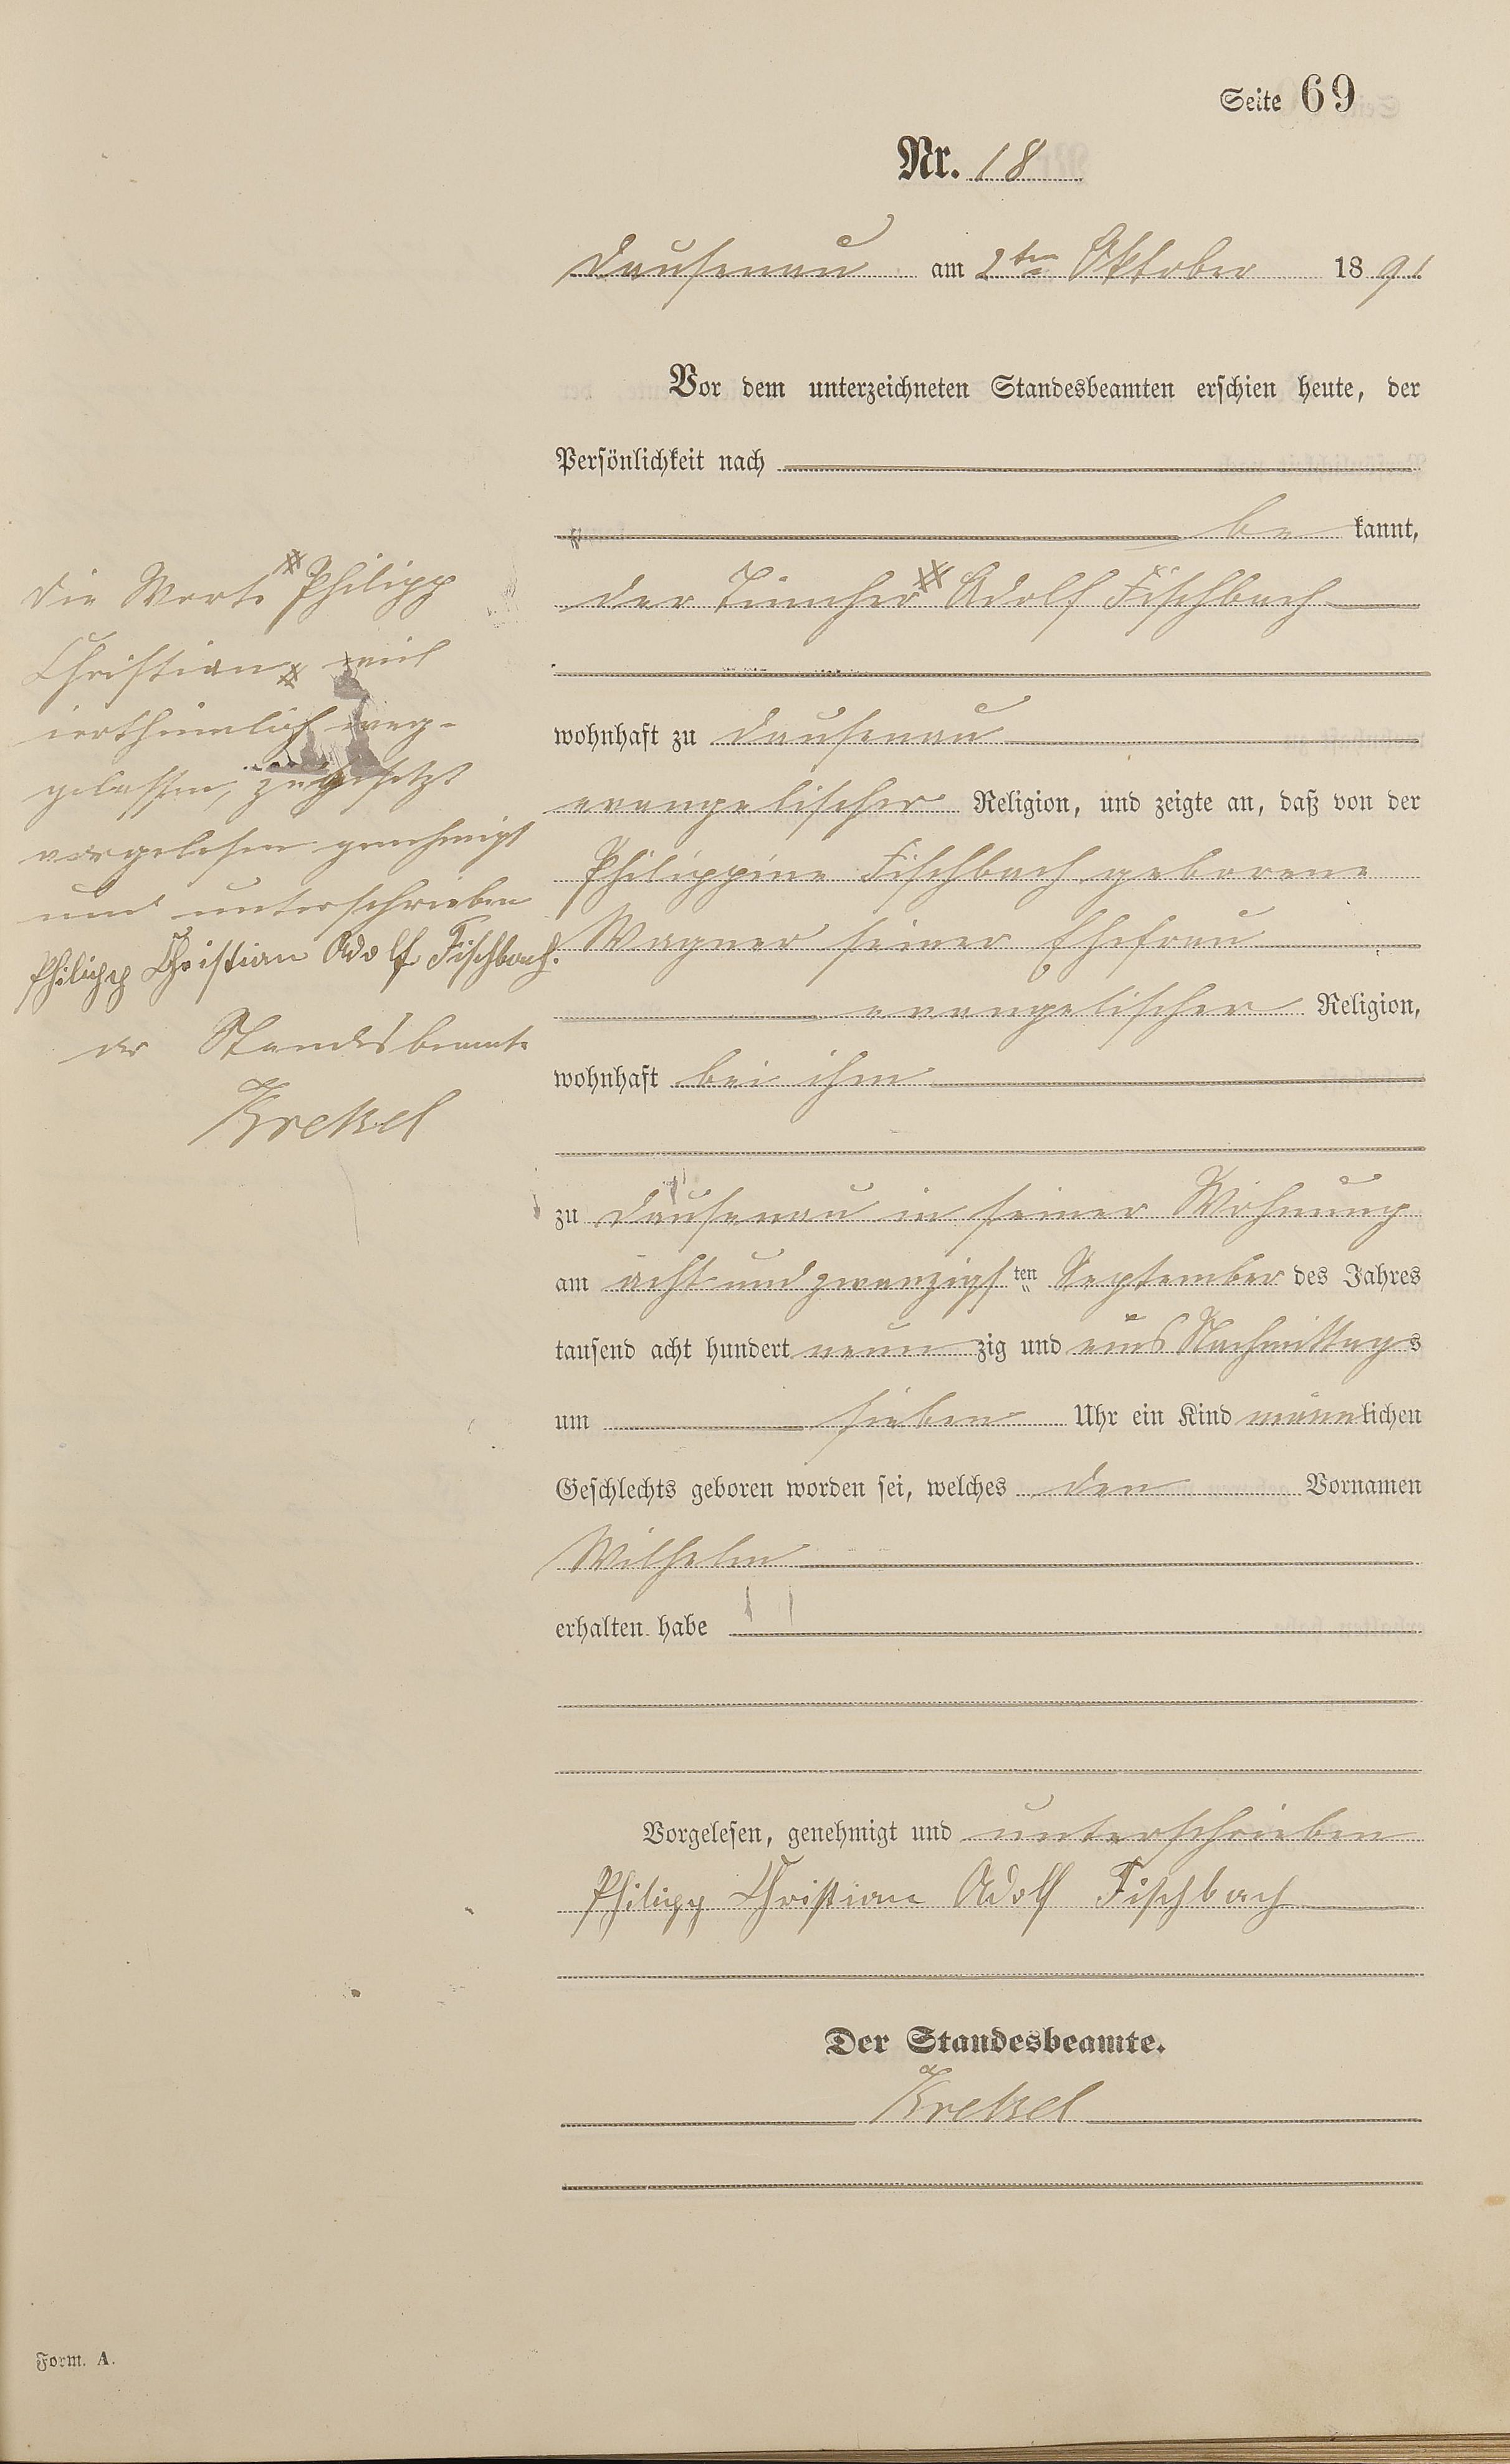 Seite 69
Nr. 18
Dausenau am 2ten Oktober 1891
Vor dem unterzeichneten Standesbeamten erschien heute, der
Persönlichkeit nach
be kannt,
der Tüncher # Adolf Fischbach
wohnhaft zu Dausenau
evangelischer Religion, und zeigte an, daß von der
Philippine Fischbach geborene
Wagner seiner Ehefrau
evangelischer Religion,
wohnhaft bei ihm
zu Dausenau in seiner Wohnung
am acht und zwanzigsten September des Jahres
tausend acht hundert neun zig und eins Nachmittags
um sieben Uhr ein Kind männlichen
Geschlechts geboren worden sei, welches den Vornamen
Wilhelm
erhalten habe
Vorgelesen, genehmigt und unterschrieben
Philipp Christian Adolf Fischbach
Der Standesbeamte.
Krekel
Die Worte # Philipp
Christian # weil
irrthümlich weg-
gelassen, zugesetzt
vorgelesen genehmigt
und unterschrieben
Philipp Christian Adolf Fischbach.
der Standesbeamte
Krekel
Form. A.